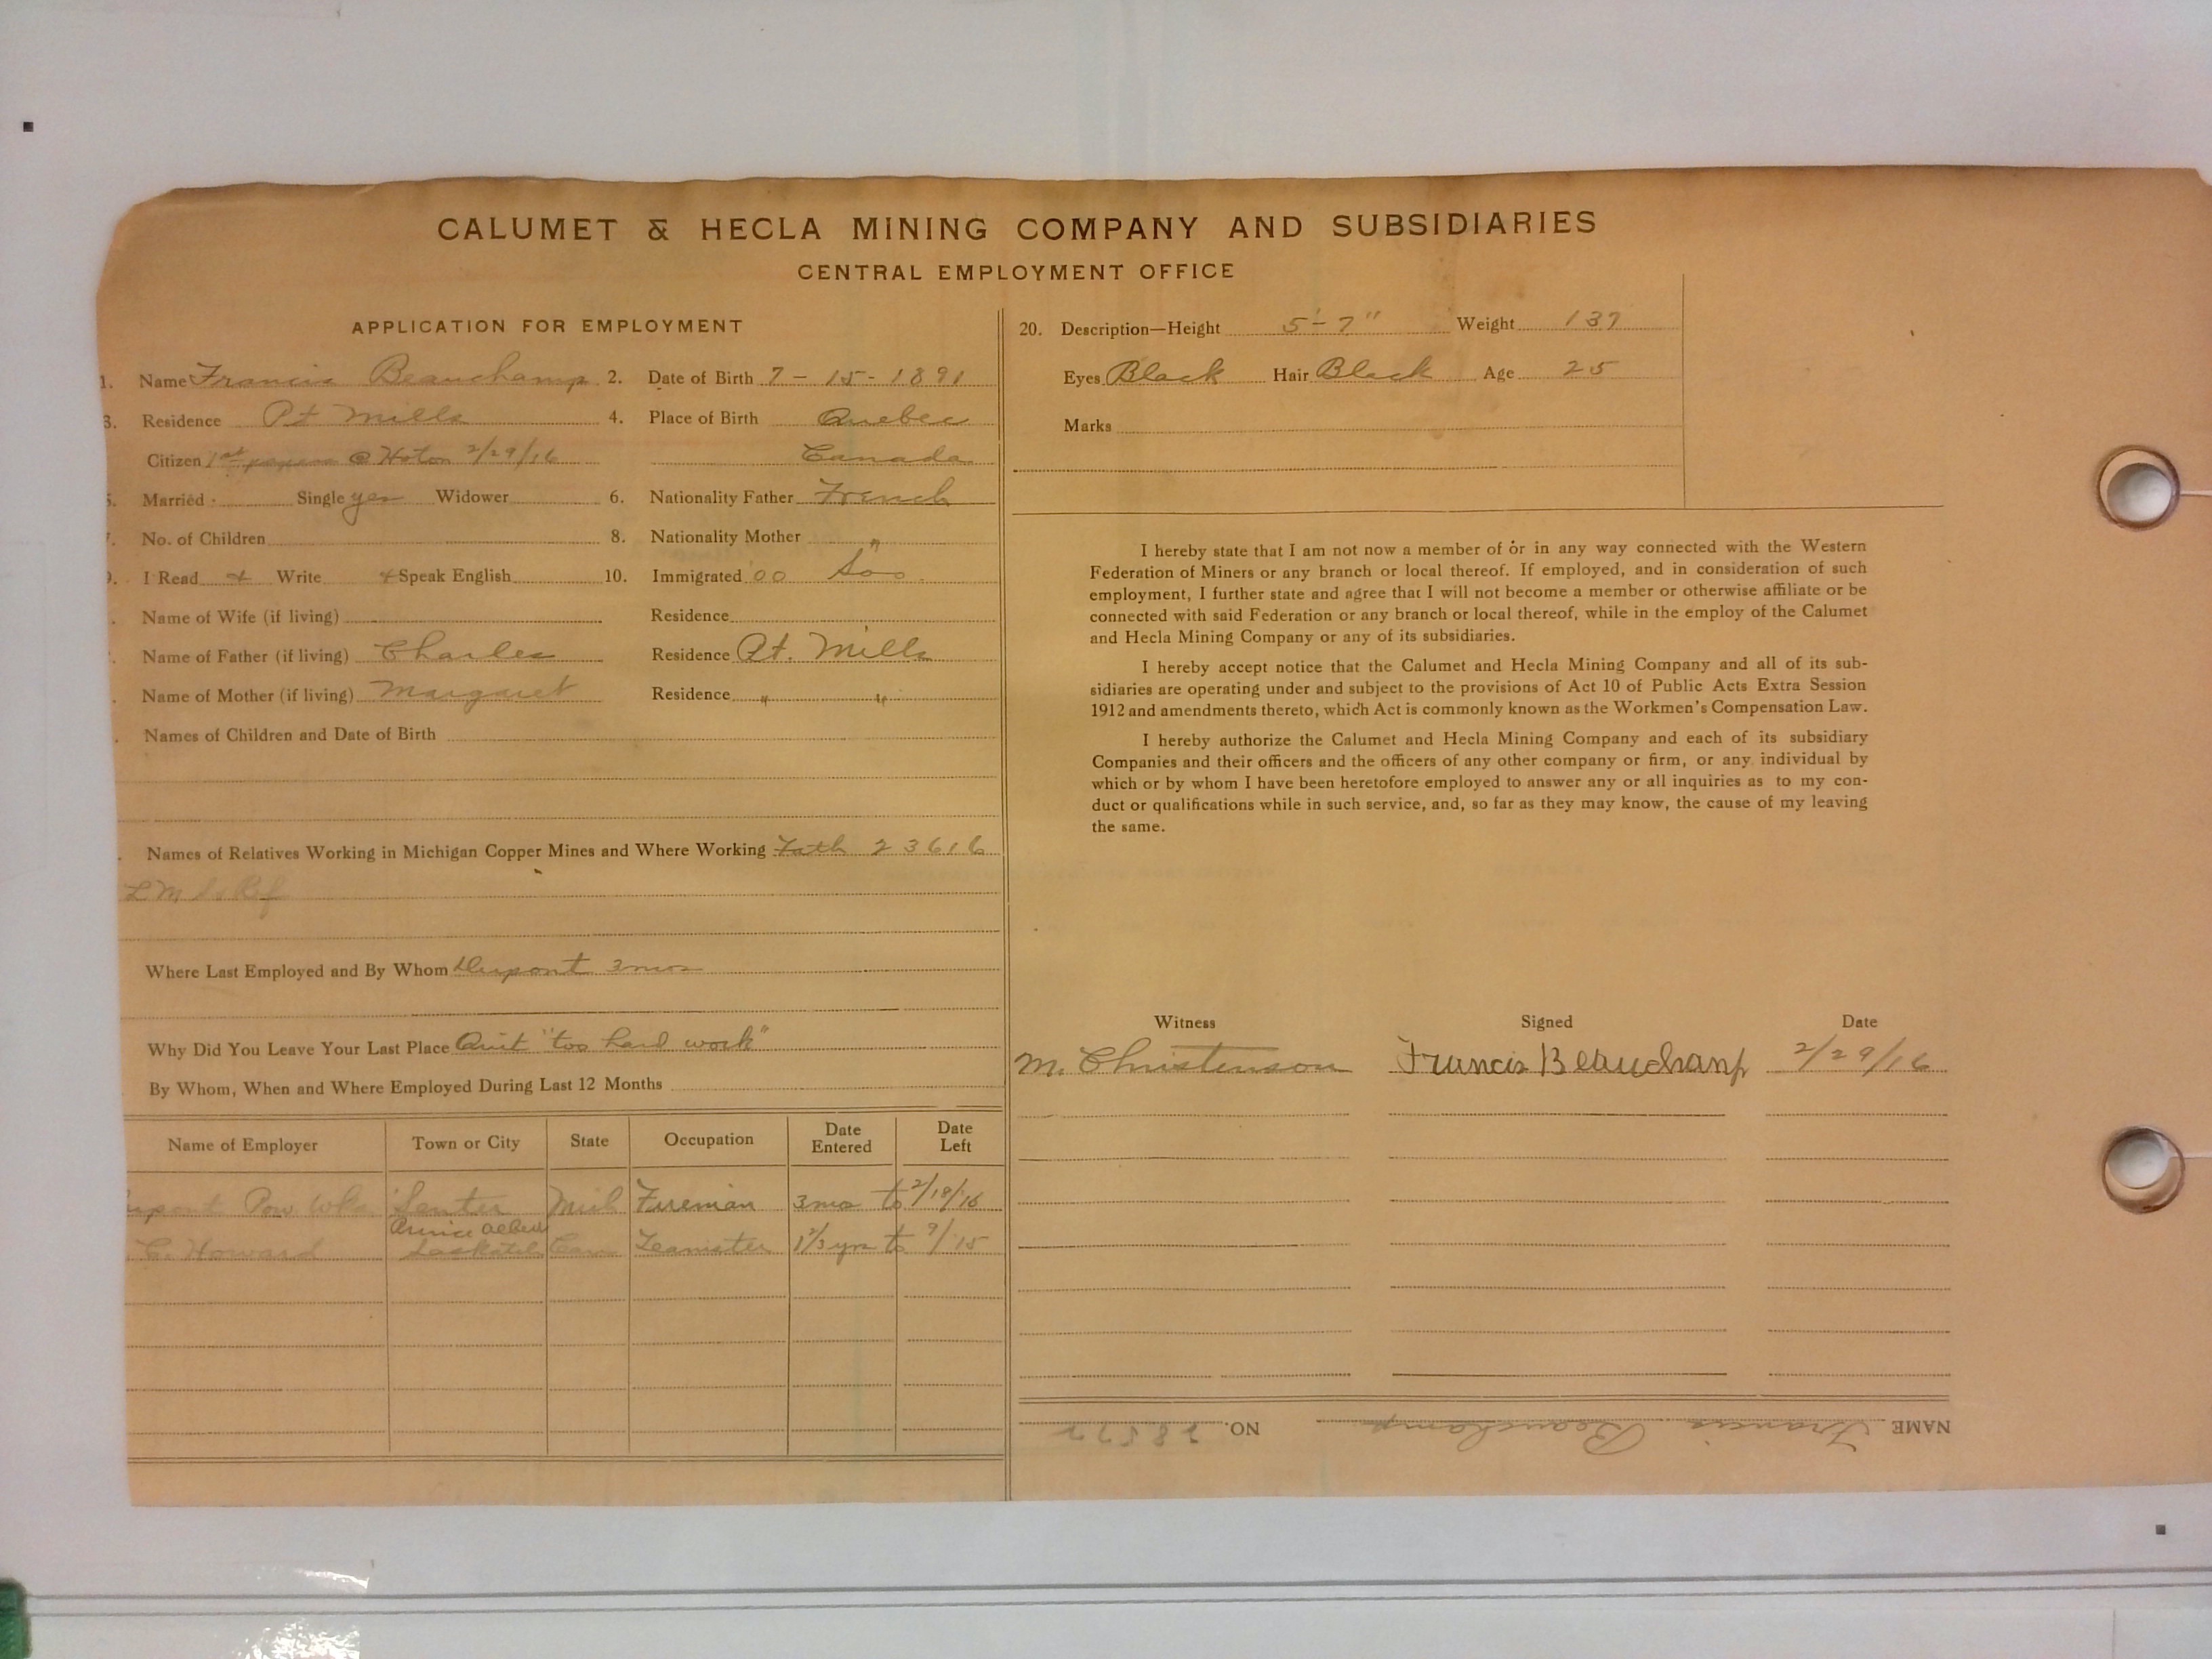 CALUMET & HECLA MINING COMPANY AND SUBSIDIARIES
CENTRAL EMPLOYMENT OFFICE
APPLICATION FOR EMPLOYMENT
1. Name Francis Beauchamp 2. Date of Birth 7-15-1891
3. Residence Pt Mills 4. Place of Birth Quebec
Citizen 1st papers @ Hoton 2/29/16 Canada
5. Married Single yes Widower 6. Nationality Father French
7. No. of Children 8. Nationality Mother "
9. I Read + Write + Speak English 10. Immigrated 00 Soo
Name of Wife (if living) Residence
Name of Father (if living) Charles Residence Pt. Mills
Name of Mother (if living) Margaret Residence " "
Names of Children and Date of Birth
Names of Relatives Working in Michigan Copper Mines and Where Working Fath 23616
L M S Ref
Where Last Employed and By Whom Dupont 3mos
Why Did You Leave Your Last Place Quit "too hard work"
By Whom, When and Where Employed During Last 12 Months
Name of Employer Town or City State Occupation Date Entered Date Left
upont Pow Wks Senter Mich Fireman 3mo to 2/18/16
Prince Albert
C. Howard Can Teamster 1 1/3 yrs to 9/15
20. Description—Height 5'-7" Weight 137
Eyes Black Hair Black Age 25
Marks
I hereby state that I am not now a member of or in any way connected with the Western
Federation of Miners or any branch or local thereof. If employed, and in consideration of such
employment, I further state and agree that I will not become a member or otherwise affiliate or be
connected with said Federation or any branch or local thereof, while in the employ of the Calumet
and Hecla Mining Company or any of its subsidiaries.
I hereby accept notice that the Calumet and Hecla Mining Company and all of its sub-
sidiaries are operating under and subject to the provisions of Act 10 of Public Acts Extra Session
1912 and amendments thereto, which Act is commonly known as the Workmen's Compensation Law.
I hereby authorize the Calumet and Hecla Mining Company and each of its subsidiary
Companies and their officers and the officers of any other company or firm, or any individual by
which or by whom I have been heretofore employed to answer any or all inquiries as to my con-
duct or qualifications while in such service, and, so far as they may know, the cause of my leaving
the same.
Witness Signed Date
M. Christenson Francis Beauchamp 2/29/16
NAME Francis Beauchamp NO.